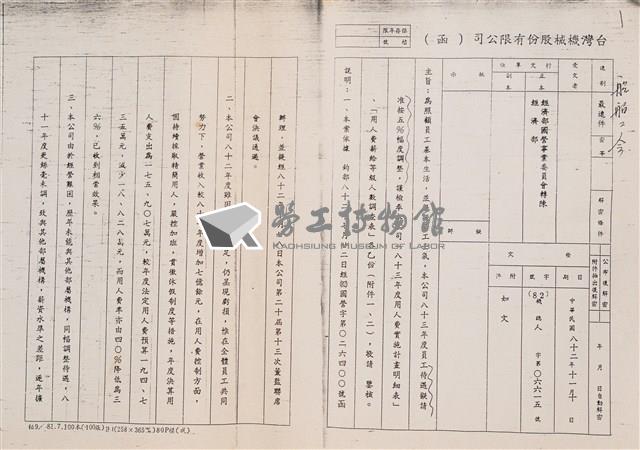 台灣機械股份有限公司（函）
保存年限
檔號
速別
最速件
密等
解密條件
公布後解密
附件抽出後解密
年 月 日自動解密
受文者
行文單位
正本
經濟部國營事業委員會轉陳
經濟部
副本
發文
日期
中華民國八十二年十一月十日
字號
(82)
人字第〇六六一五號
附件
如文
批示
擬辦
主旨：為照顧員工基本生活，並
氣，本公司八十三年度員工待遇擬請
准按五％幅度調整，謹檢奉
司八十三年度用人費實施計畫明細表」
、「用人費薪給等級人數調查表」各乙份（附件一、二），敬請 鑒核。
說明：一、本案依據 鈞部八十三年
月二日經(82)國營字第〇二六四〇〇號函
辦理，並提經八十二
日本公司第二十屆第十三次董監聯席
會決議通過。
二、本公司八十二年度雖因
足，仍呈現虧損，惟在全體員工共同
努力下，營業收入較八十
年度增加七億餘元，在用人費控制方面，
因持續採取精簡用人，嚴控加班，貫徹休假制度等措施，年度決算用
人費支出為一七五、九〇七萬元，較年度法定用人費預算一九四、七
三五萬元，減少一八、八二八萬元，而用人費率亦由四〇％降低為三
六％，已收到相當效果。
三、本公司由於經營艱困，歷年未能與其他部屬機構，同幅調整待遇，八
十一年度更絲毫未調，致與其他部屬機構，薪資水準之差距，逐年擴
勞工博物館
KAOHSIUNG MUSEUM OF LABOR